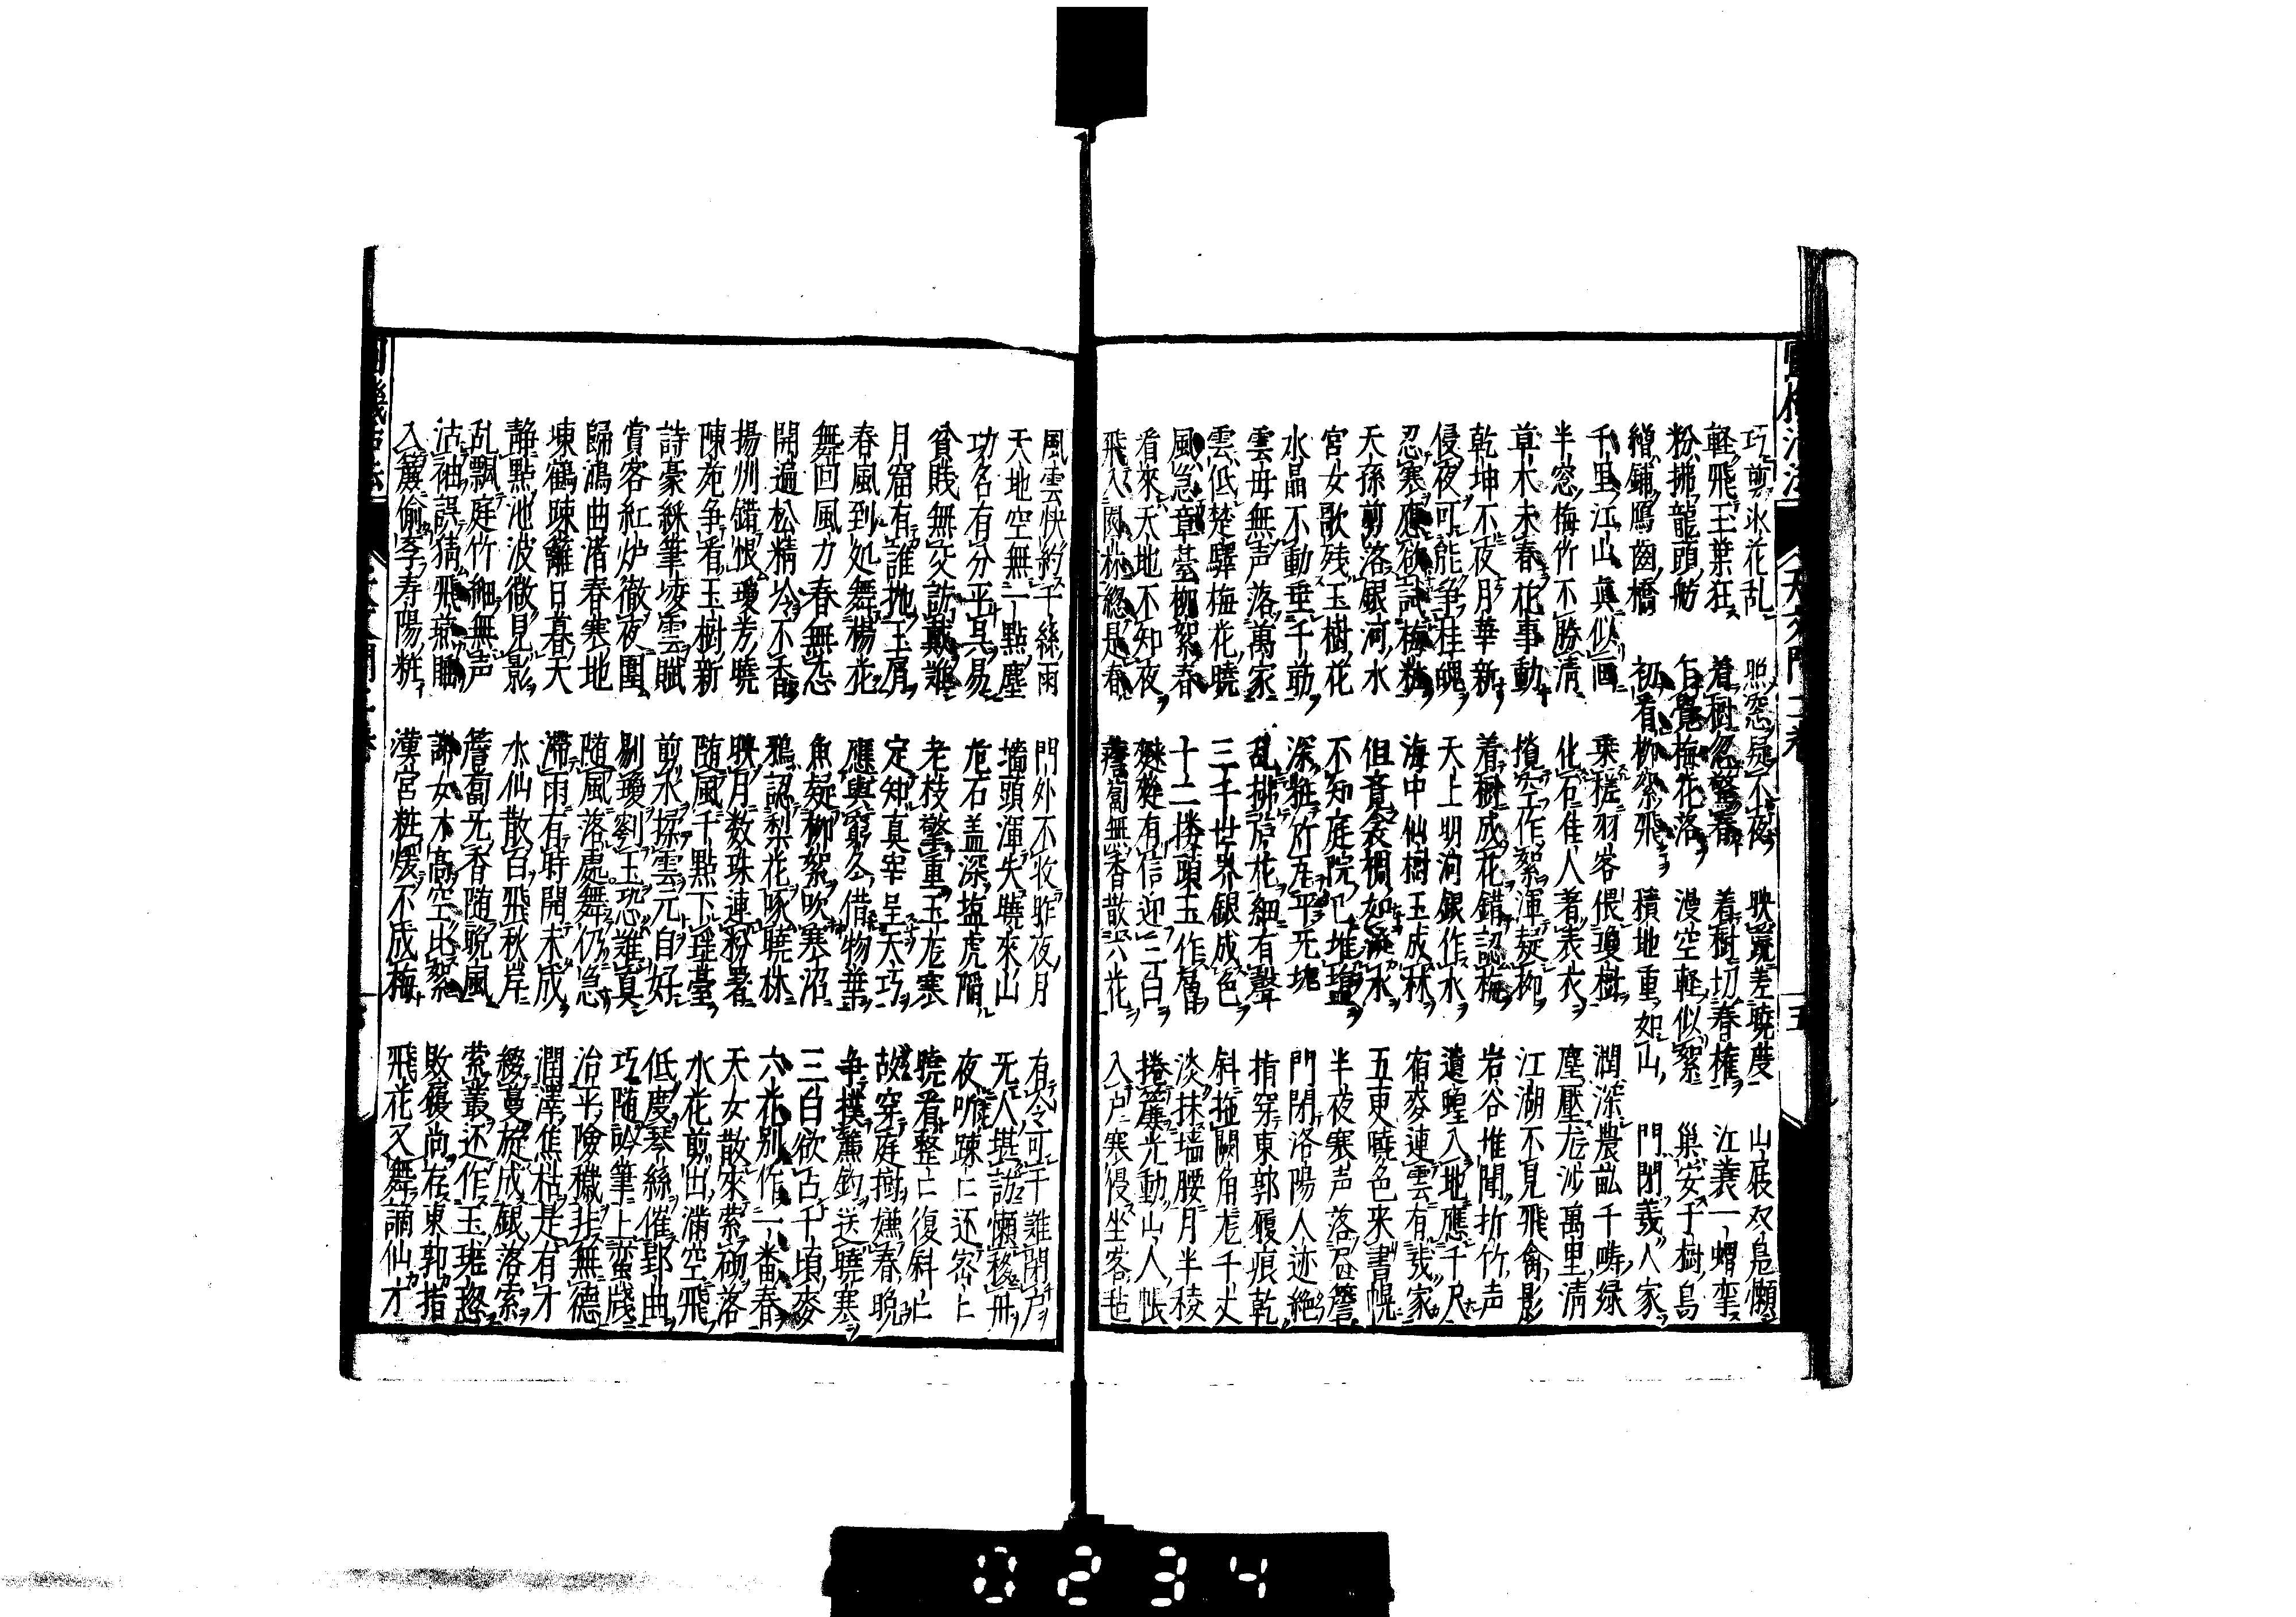 巧剪氷花乱 照窓疑不夜 映 差曉度 山屐双鳧懶
軽飛玉葉狂 着樹忽驚春 着樹切春権 江蓑一蝟
粉拂龍頭舫 乍覺梅花落 漫空軽似絮 巣安于樹鳥
繒鋪鴈齒橋 初看柳絮飛 積地重如山 門閉 人家
千里江山真似画 乗槎羽客偎瓊樹 潤深農畝千疇緑
半窓梅竹不勝清 化石佳人著表衣 塵壓 沙萬里清
草木未春花事動 攬空作絮渾疑柳 江湖不見飛禽影
乾坤不夜月華新 着樹成花錯認梅 岩谷惟聞折竹声
侵夜可能争桂魄 天上明河銀作水 遺蝗入地應千尺
忍寒應欲試梅粧 海中仙樹玉成林 宿麥連雲有幾家
天孫剪落銀河水 但覚衾裯如潑水 五更曉色来書幌
宮女歌残玉樹花 不知庭院已堆塩 半夜寒声落 簷
水晶不動垂千筯 深粧竹瓦平无塊 門閉洛陽人迹絶
雲母無声落萬家 乱拂窓花細有聲 指穿東郭履痕乾
雲低楚驛梅花曉 三千世界銀成色 斜拖闕角 千丈
風急章臺柳絮春 十二楼頭玉作層 淡抹墻腰月半稜
看來天地不知夜 有信迎三白 捲簾光動山人帳
飛入園林総是春 薝蔔無香散六花 入户寒侵坐客毡
風雲快約千絲雨 門外不收昨夜月 有令可干難閉户
天地空無一點塵 墻頭渾失曉來山 无人堪訪懶移舟
功名有分平呉易 危石盖深塩虎陥 夜听踈亡还密亡
貧賎無交訪戴難 老枝擎重玉龙寒 曉看整亡復斜亡
月窟有誰抛玉屑 定知真宰呈天巧 故穿庭樹嫌春晩
春風到処舞楊花 應與窮久借物華 争撲薫 送曉寒
舞回風力春無 魚疑柳絮吹寒沼 三白欲占千頃麥
開遍松精 不香 鴉認梨花啄曉林 六花別作一番春
揚州錯恨瓊芳曉 映月数珠連粉署 天女散來萦砌落
陳苑争看玉樹新 随風千點下瑶臺 水花剪出滿空飛
詩豪 筆凌雲賦 剪水 雲元自好 低慶琴絲催郢曲
賞客紅炉徹夜圍 剔瓊劉玉恐難真 巧随吟筆上蛮牋
歸鴻曲渚春寒地 随風落處舞仍急 冶平險穢非無德
埬鶴踈離日暮天 滞雨有時開未成 潤澤焦枯是有才
静點池波微見影 水仙散白飛秋岸 綬蔓旋成銀落索
乱飄庭竹細無声 薝蔔无香随晩風 萦叢还作玉
沽袖誤猜飛燕 謝女才高空比絮 敗履尚存東郭指
入簾偷李寿陽粧 漢宮粧煖不成梅 飛花又舞謫仙才